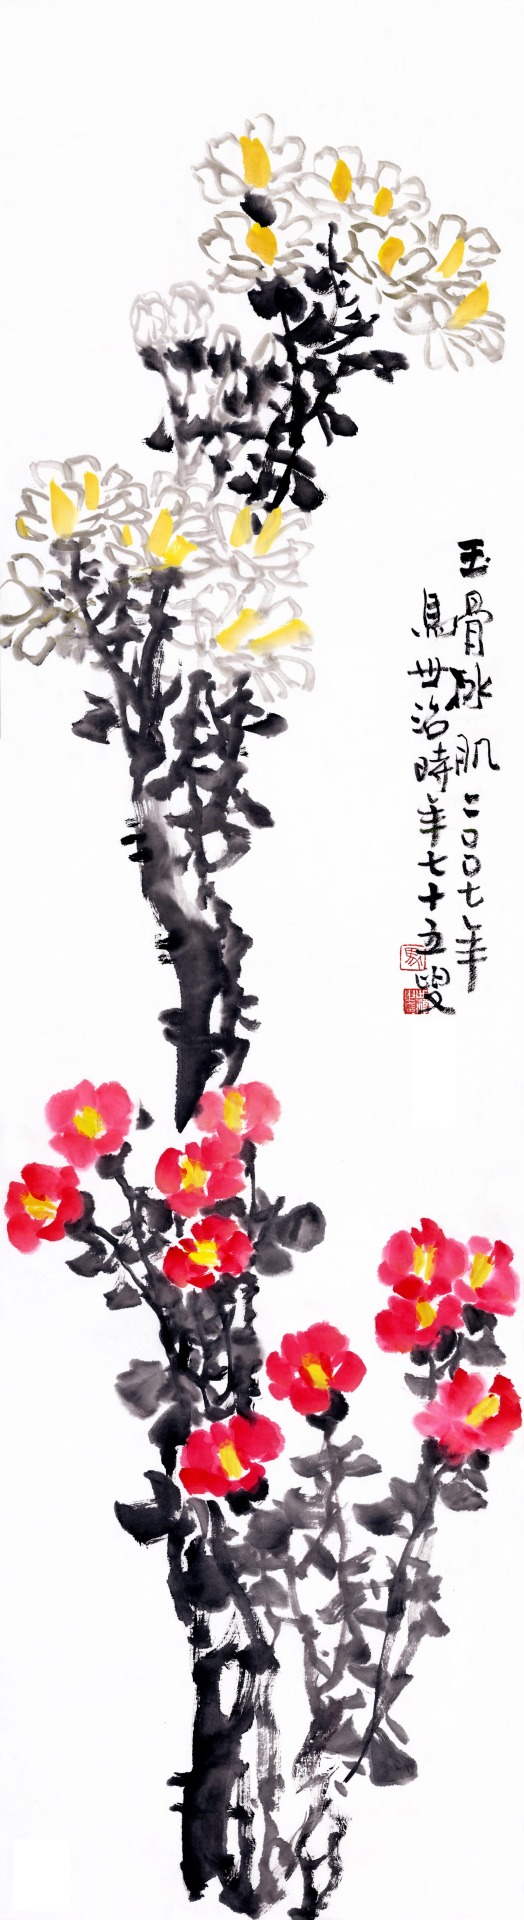 玉骨冰肌 二〇〇七年
馬世治時年七十五叟